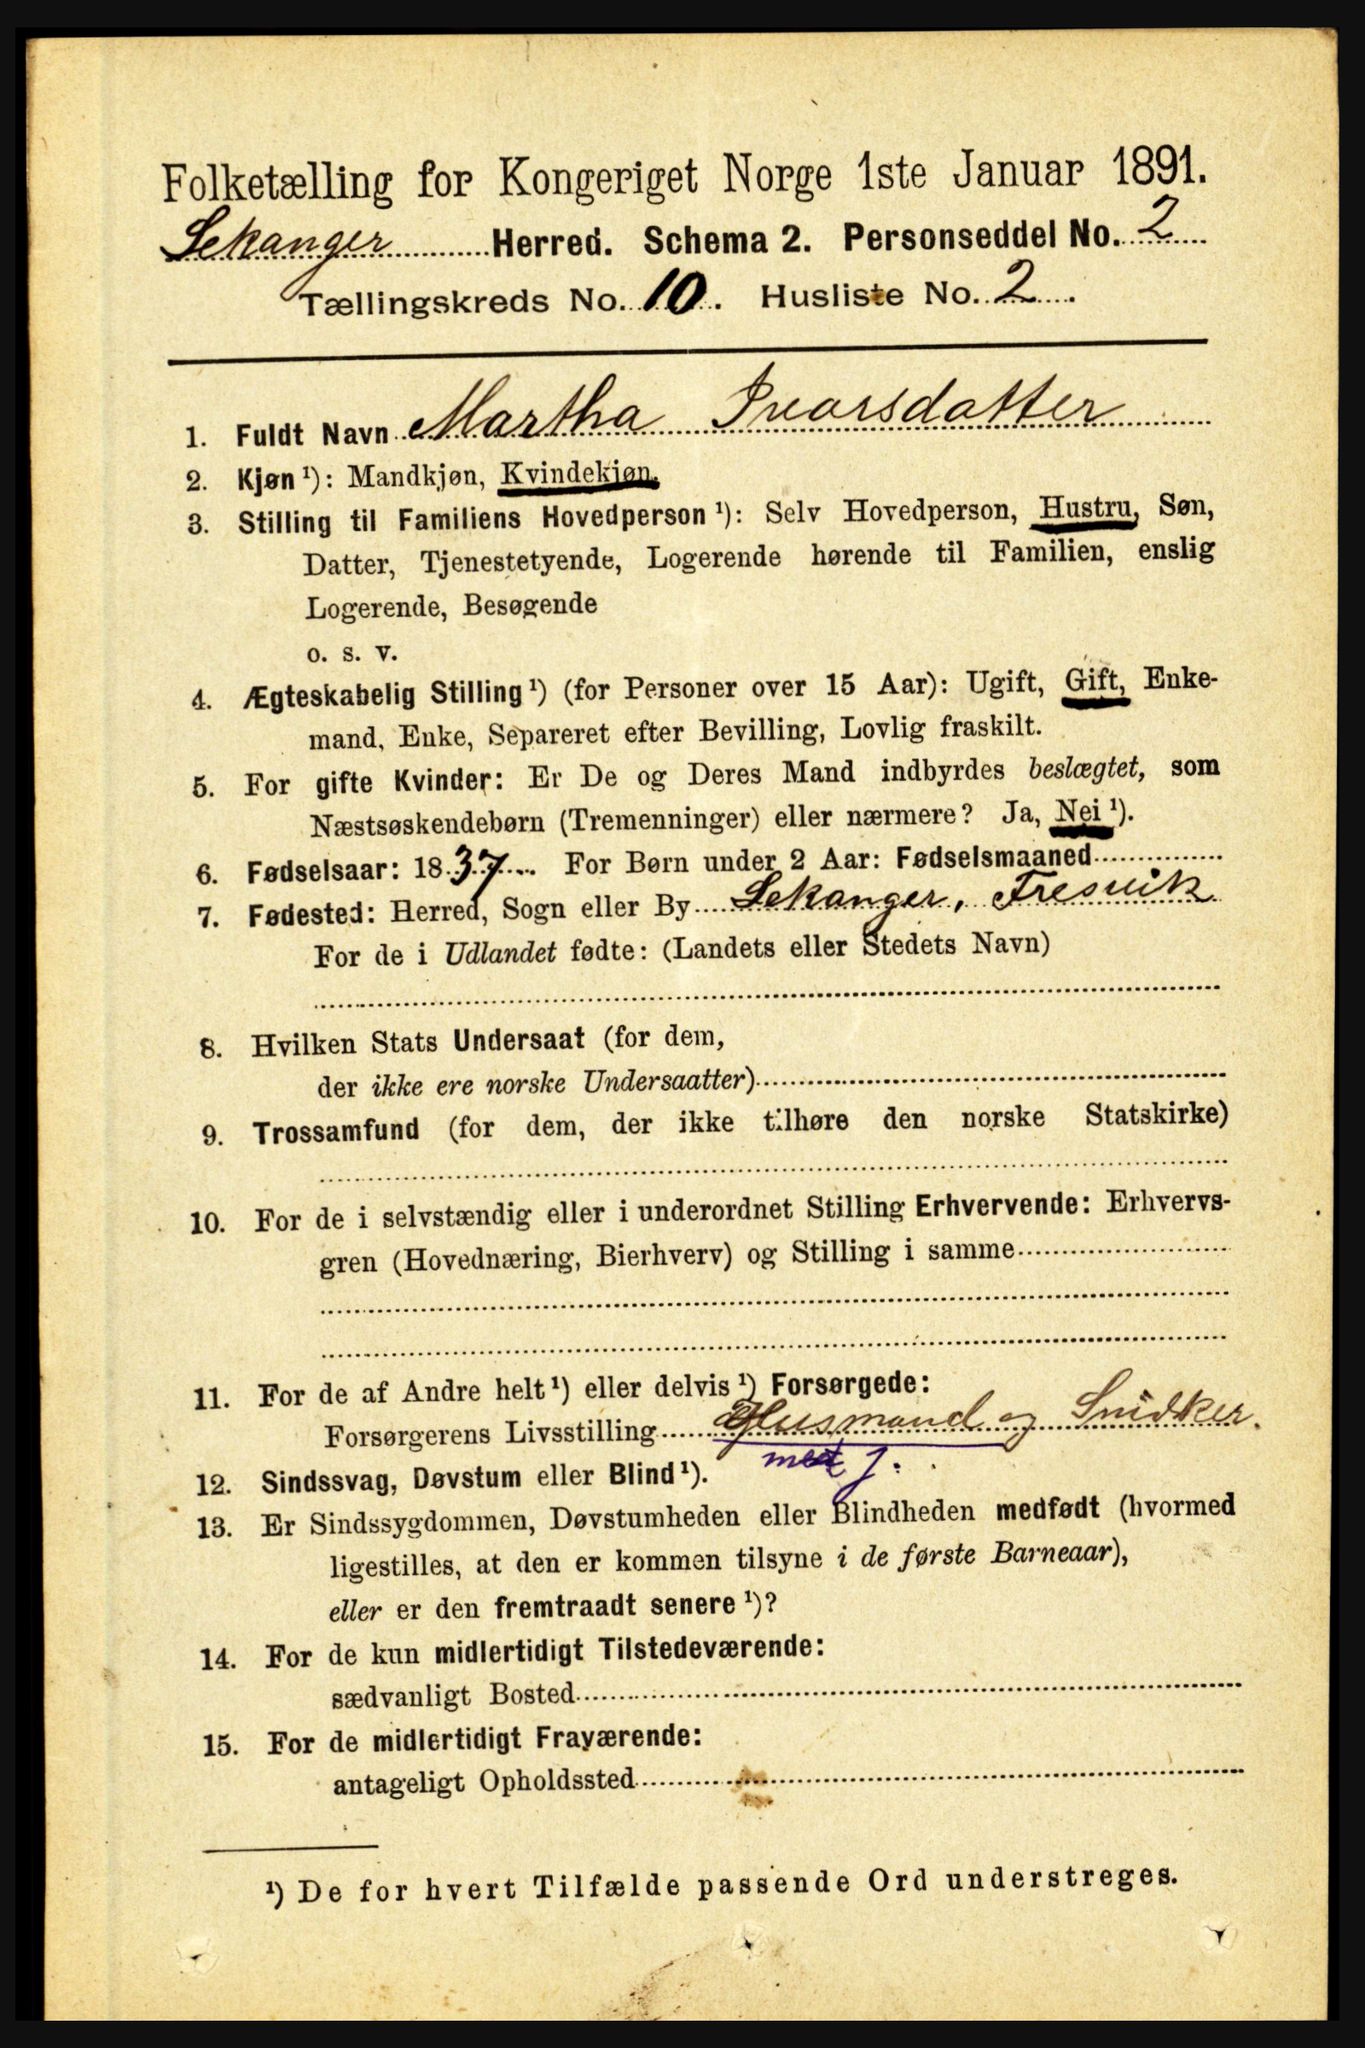 Folketælling for Kongeriget Norge 1ste Januar 1891.
Lekanger Herred. Schema 2. Personseddel No. 2
Tællingskreds No. 10. Husliste No. 2.
1. Fuldt Navn Martha Ivarsdatter
2. Kjøn ¹): Mandkjøn, Kvindekjøn.
3. Stilling til Familiens Hovedperson ¹): Selv Hovedperson, Hustru, Søn,
Datter, Tjenestetyende, Logerende hørende til Familien, enslig
Logerende, Besøgende
o. s. v.
4. Ægteskabelig Stilling ¹) (for Personer over 15 Aar): Ugift, Gift, Enke-
mand, Enke, Separeret efter Bevilling, Lovlig fraskilt.
5. For gifte Kvinder: Er De og Deres Mand indbyrdes beslægtet, som
Næstsøskendebørn (Tremenninger) eller nærmere? Ja, Nei ¹).
6. Fødselsaar: 1837. For Børn under 2 Aar: Fødselsmaaned
7. Fødested: Herred, Sogn eller By Lekanger, Fresvik
For de i Udlandet fødte: (Landets eller Stedets Navn)
8. Hvilken Stats Undersaat (for dem,
der ikke ere norske Undersaatter)
9. Trossamfund (for dem, der ikke tilhøre den norske Statskirke)
10. For de i selvstændig eller i underordnet Stilling Erhvervende: Erhvervs-
gren (Hovednæring, Bierhverv) og Stilling i samme
11. For de af Andre helt ¹) eller delvis ¹) Forsørgede:
Forsørgerens Livsstilling Husmand og Snidker.
med j.
12. Sindssvag, Døvstum eller Blind ¹).
13. Er Sindssygdommen, Døvstumheden eller Blindheden medfødt (hvormed
ligestilles, at den er kommen tilsyne i de første Barneaar),
eller er den fremtraadt senere ¹)?
14. For de kun midlertidigt Tilstedeværende:
sædvanligt Bosted
15. For de midlertidigt Fraværende:
antageligt Opholdssted
¹) De for hvert Tilfælde passende Ord understreges.